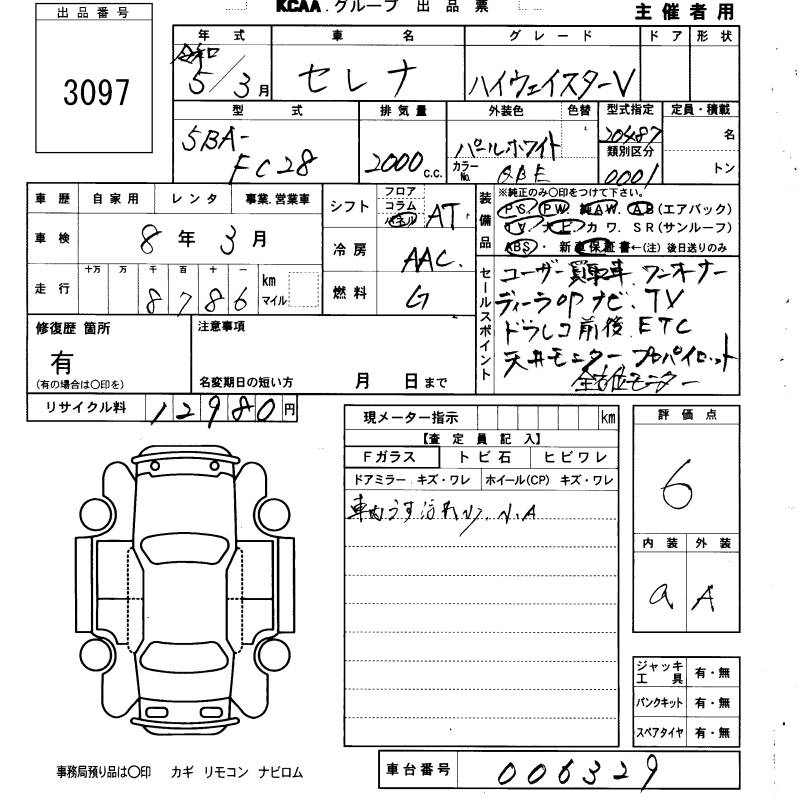 KCAA.グループ 出品票
主催者用
出品番号
3097
年式 車名 グレード ドア 形状
令和
5/3月 セレナ ハイウェイスターV
型式 排気量 外装色 色替 型式指定 定員・積載
5BA-
FC28 2000c.c. パールホワイト
カラーNo. QBE
20487
類別区分
0001
名
トン
車歴 自家用 レンタ 事業.営業車
車検 8年3月
走行 十万 万 千 百 十 一
8786 km
マイル
シフト フロア
コラム
パネル AT
冷房 AAC.
燃料 G
装備品 ※純正のみ〇印をつけて下さい。
PS. PW. 純AW. AB(エアバック)
TV. ナビ. カワ. SR(サンルーフ)
ABS・新車保証書←(注)後日送りのみ
セールスポイント
ユーザー買取車 ワンオーナー
ディーラOPナビ. TV
ドラレコ前後 ETC
天井モニター プロパイロット
全方位モニター
修復歴 箇所
有
(有の場合は〇印を)
注意事項
名変期日の短い方 月 日まで
リサイクル料 12980円
現メーター指示 km
【査定員記入】
Fガラス トビ石 ヒビワレ
ドアミラー キズ・ワレ ホイール(CP) キズ・ワレ
車内うす汚れ 小. N.A
評価点
6
内装 外装
a A
ジャッキ
工具 有・無
パンクキット 有・無
スペアタイヤ 有・無
事務局預り品は〇印 カギ リモコン ナビロム
車台番号 006329